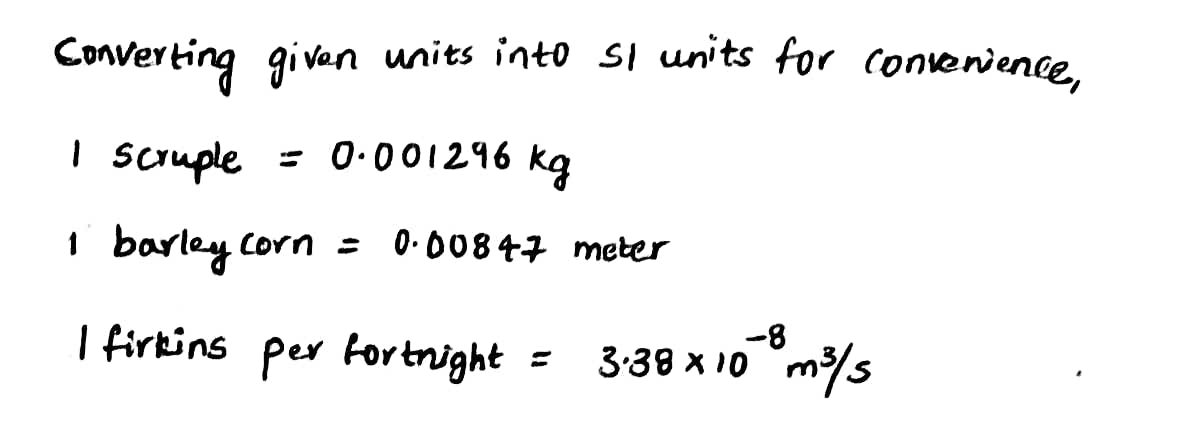 Converting given units into SI units for convenience,
1 scruple = 0.001296 kg
1 barley corn = 0.00847 meter
1 firkins per fortnight = 3.38 × 10⁻⁸ m³/s